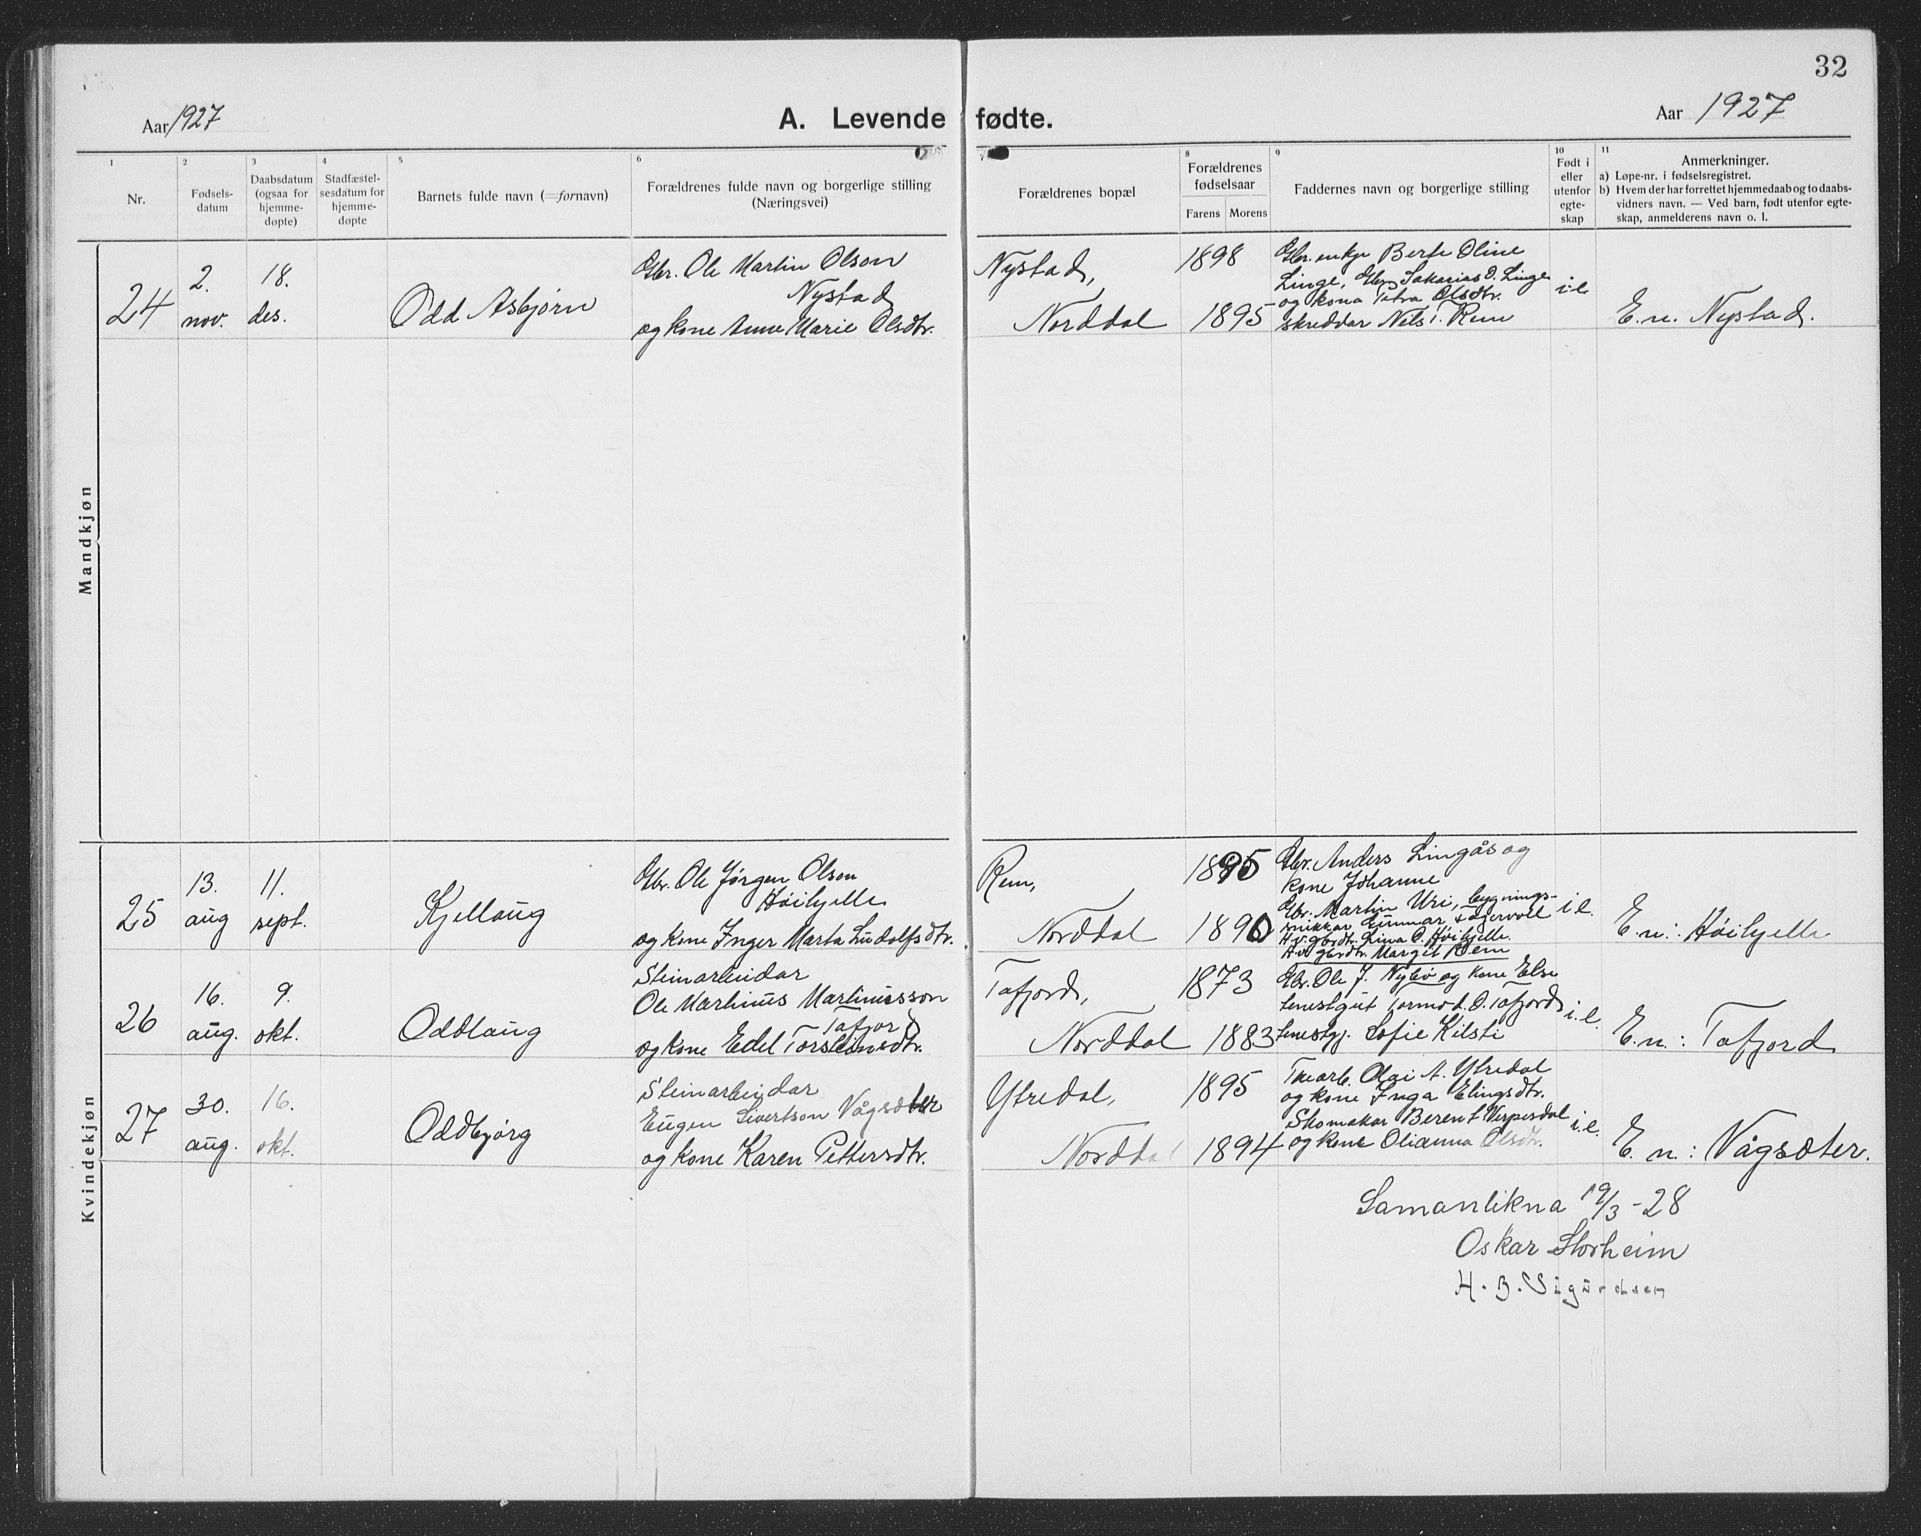 32
Aar 1927
A. Levende fødte.
Aar 1927
1
Nr.
2
Fødsels-
datum
3
Daabsdatum
(ogsaa for
hjemme-
døpte)
4
Stadfæstel-
sesdatum for
hjemme-
døpte
5
Barnets fulde navn (=fornavn)
6
Forældrenes fulde navn og borgerlige stilling
(Næringsvei)
7
Forældrenes bopæl
8
Forældrenes
fødselsaar
Farens Morens
9
Faddernes navn og borgerlige stilling
10
Født i
eller
utenfor
egte-
skap
11
Anmerkninger.
a) Løpe-nr. i fødselsregistret.
b) Hvem der har forrettet hjemmedaab og to daabs-
vidners navn. — Ved barn, født utenfor egte-
skap, anmelderens navn o. l.
Mandkjøn
24
2.
nov.
18.
des.
Odd Asbjørn
Gbr. Ole Martin Olson
Nystad
og kone Anne Marie Olsdtr.
Nystad,
Norddal
1898
1895
Gbr. enkje Berte Oline
Linge, Gbr. Sakarias O. Linge
og kona Petra Olsdtr.
skreddar Nels i. Rem
i.e.
E.n. Nystad.
Kvindekjøn
25
13.
aug
11.
sept.
Kjellaug
Gbr. Ole Jørgen Olson
Høihjelle
og kone Inger Marta Ludolfsdtr.
Rem,
Norddal
1895
1890
Gbr. Anders Lingås og
kone Johanne
Gbr. Martin Uri, bygnings-
snikkar Gunnar
H.v. gbrdtr. Lina O. Høihjelle.
H.v. gbrdtr. Margit Rem
i.e.
E.n.: Høihjelle
26
16.
aug.
9.
okt.
Oddlaug
Steinarbeidar
Ole Martinus Martinusson
Tafjord
og kone Edel Torsteinsdtr.
Tafjord,
Norddal
1873
1883
Gbr. Ole J. Nybø og kone Else
tenestgut Tormod O. Tafjord
tenestgj. Sofie Kilsti
i.e.
E.n.: Tafjord
27
30.
aug.
16.
okt.
Oddbjørg
Steinarbeidar
Eugen Sivertson Vågsæter
og kone Karen Pettersdtr.
Ytredal,
Norddal
1895
1894
Olai A. Ytredal
og kone Inga Elingsdtr.
Skomakar Berent Verpesdal
og kone Olianna Olsdtr.
i.e.
E. n.: Vågsæter.
Samanlikna 19/3-28
Oskar Storheim
H. B. Sigurdsen